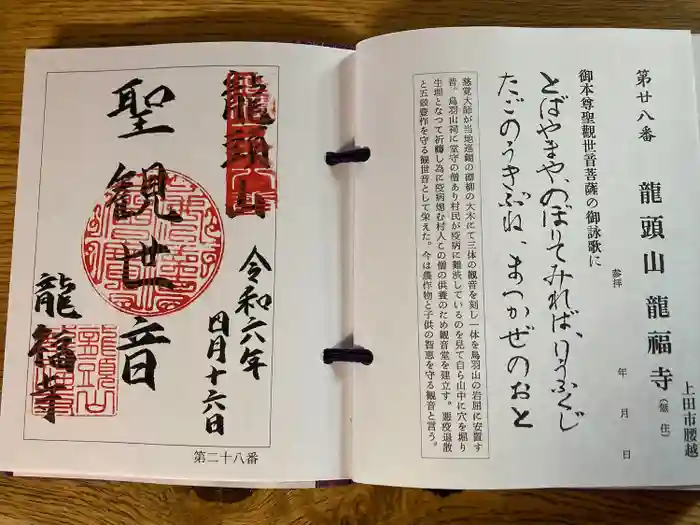 第廿八番 龍頭山 龍福寺(無住)
上田市腰越
参拝 年 月 日
御本尊聖觀世音菩薩の御詠歌に
とばやまや、のぼりてみれば、りうふくじ
たごのうきぶね、まつかぜのおと
慈覚大師が当地巡錫の際柳の大木にて三体の観音を刻し一体を鳥羽山の岩屈に安置す
昔。鳥羽山祠に堂守の僧あり村民が疫病に難渋しているのを見て自ら山中に穴を堀り
生埋となつて祈禱し為に疫病熄む村人この僧の供養のため観音堂を建立す。悪疫退散
と五穀豊作を守る観世音として栄えた。今は農作物と子供の智恵を守る観音と言う。
龍頭山
令和六年
四月十六日
聖観世音
龍福寺
龍頭山
第二十八番